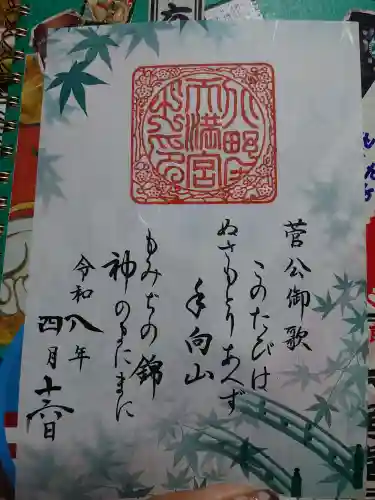 菅公御歌
このたびは
ぬさもとりあへず
手向山
もみぢの錦
神のまにまに
令和八年
四月十三日